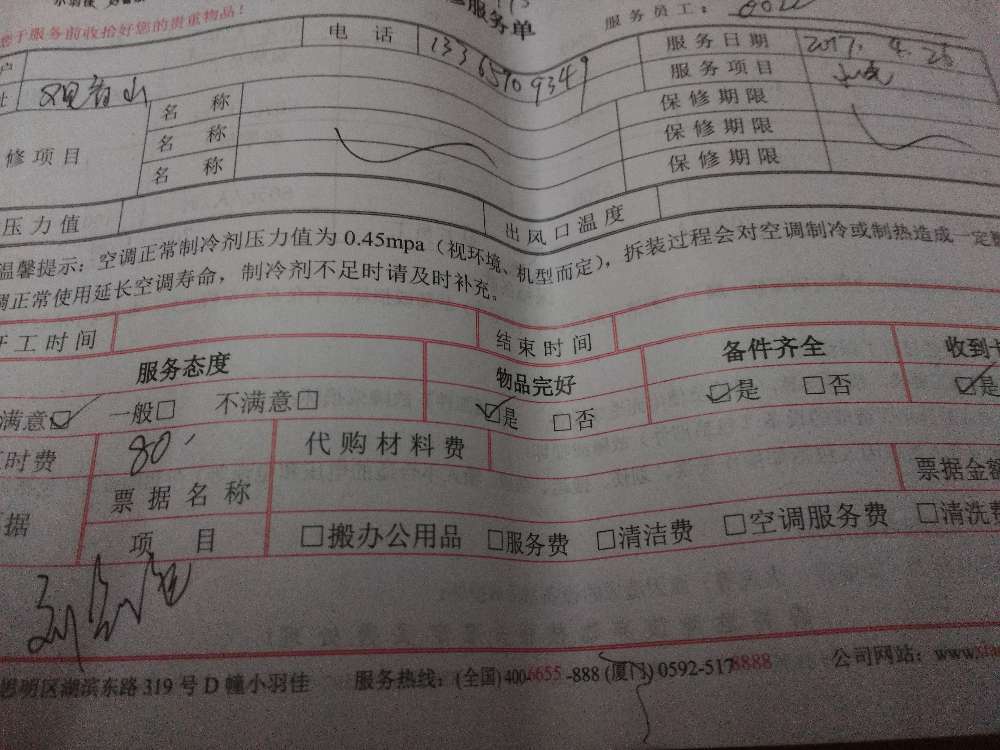 于服务前收拾好您的贵重物品！
服务单 服务员工：
电话 13365709349 服务日期 2017.4.25
址 观音山 服务项目
名称 保修期限
修项目 名称 保修期限
名称 保修期限
压力值 出风口温度
温馨提示：空调正常制冷剂压力值为 0.45mpa（视环境、机型而定），拆装过程会对空调制冷或制热造成一定
调正常使用延长空调寿命，制冷剂不足时请及时补充。
开工时间 结束时间
服务态度 物品完好 备件齐全 收到
满意☑ 一般□ 不满意□ ☑是 □否 ☑是 □否 ☑是
时费 80 代购材料费
据 票据名称 票据金额
项目 □搬办公用品 □服务费 □清洁费 □空调服务费 □清洗费
思明区湖滨东路 319 号 D 幢小羽佳 服务热线：(全国) 400-6655-888 (厦门) 0592-5178888 公司网站：www.